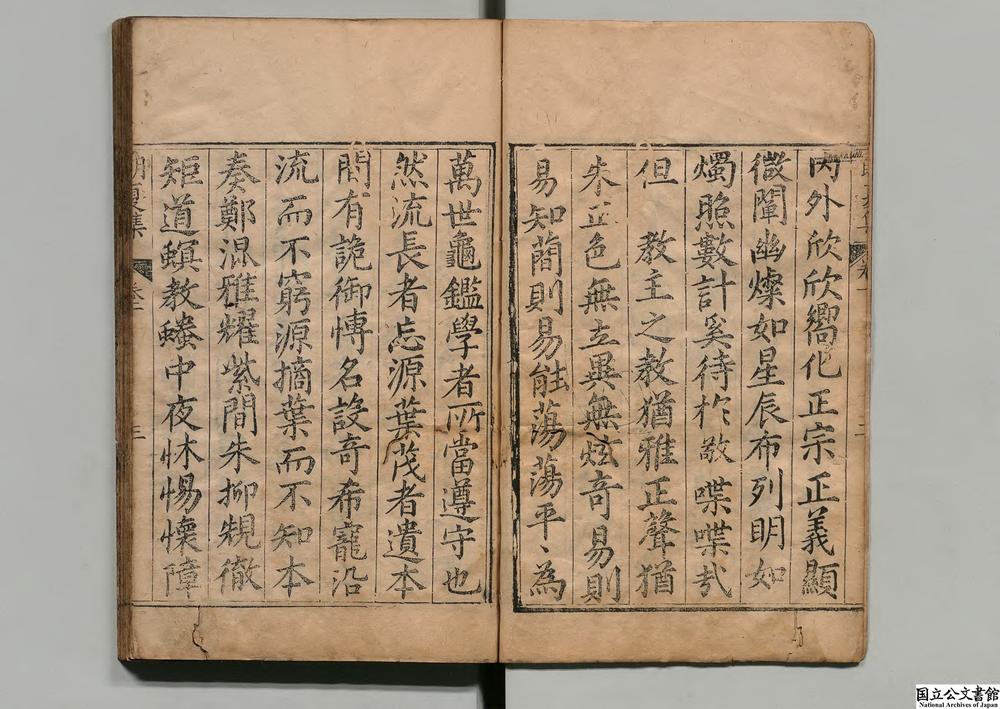 內外欣欣嚮化正宗正義顯
微闡幽燦如星辰布列明如
燭照數計奚待柞敔喋喋㦲
但　教主之教猶雅正聲猶
朱正色無立異無炫奇易則
易知蕳則易能蕩蕩平〻為
萬世龜鑑學者所當遵守也
然流長者忘源葉茂者遺本
間有詭御慱名設奇希寵沿
流而不窮源摘葉而不知本
奏鄭混雅耀紫間朱抑䂓徹
矩道螟教蟊中夜怵惕懷障
三
国立公文書館
National Archives of Japan